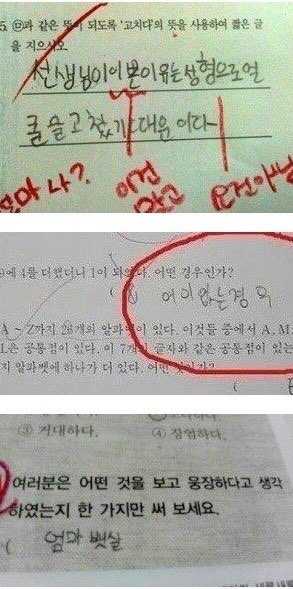 5. ㉤과 같은 뜻이 되도록 '고치다'의 뜻을 사용하여 짧은 글
을 지으시오
선생님이 이쁜이유는 성형으로 얼
굴을 고쳤기 때문 이다
엄마나? 이건 맞고 요건 아님
9에 4를 더했더니 1이 되었다. 어떤 경우인가?
( 어이없는경우
A ~ Z까지 26개의 알파벳이 있다. 이것들 중에서 A.M.
L은 공통점이 있다. 이 7개의 글자와 같은 공통점이 있는
지 알파벳에 하나가 더 있다. 어떤 것인가?
(
③ 거대하다. ④ 장엄하다.
여러분은 어떤 것을 보고 웅장하다고 생각
하였는지 한 가지만 써 보세요.
( 엄마 뱃살